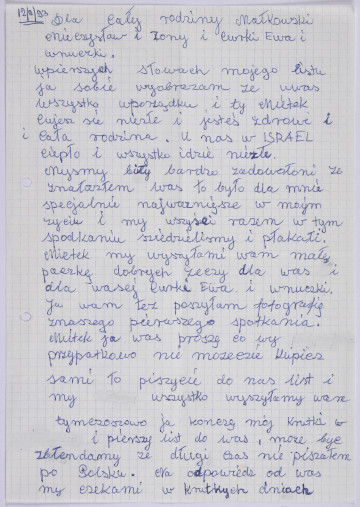 12/8/93
Dla cały rodziney Małkowski
Mieczysław i żony i curki Ewa i
wnuczki.
wpierszych słowach mojego listu
ja sobie wyobrazam ze uwas
wszystko wporządku i ty Mietek
cujesz sie niezle i jesteś zdrowi i
i cała rodzina. U nas w ISRAEL
ciepło i wszystko idzie niezłe.
Mysmy były bardzo zadowołoni ze
znałazłem was to było dla mnie
specjalnie najważniejsze w mojm
zyciu i my wszysci razem w tym
spodkaniu siedzielismy i płakali.
Mietek my wysyłami wam mały
paczkę dobrych zeczy dla was i
dla wasej curki Ewa i wnuczki.
Ja wam też poszyłam fofografię
znaszego pieraszego spotkania.
Mietek ja was proszę co wy
przypatkowo nie możecie kupicz
sami to piszycie do nas list i
my wszystko wyszyłamy wam
tymczoszowo ja konczę mój krutki
i pierszy list do was, może być
zbłendamy ze długi czas nie piszałem
po Polsku. Na odpowiedz od was
my czekami w krutkych dniach